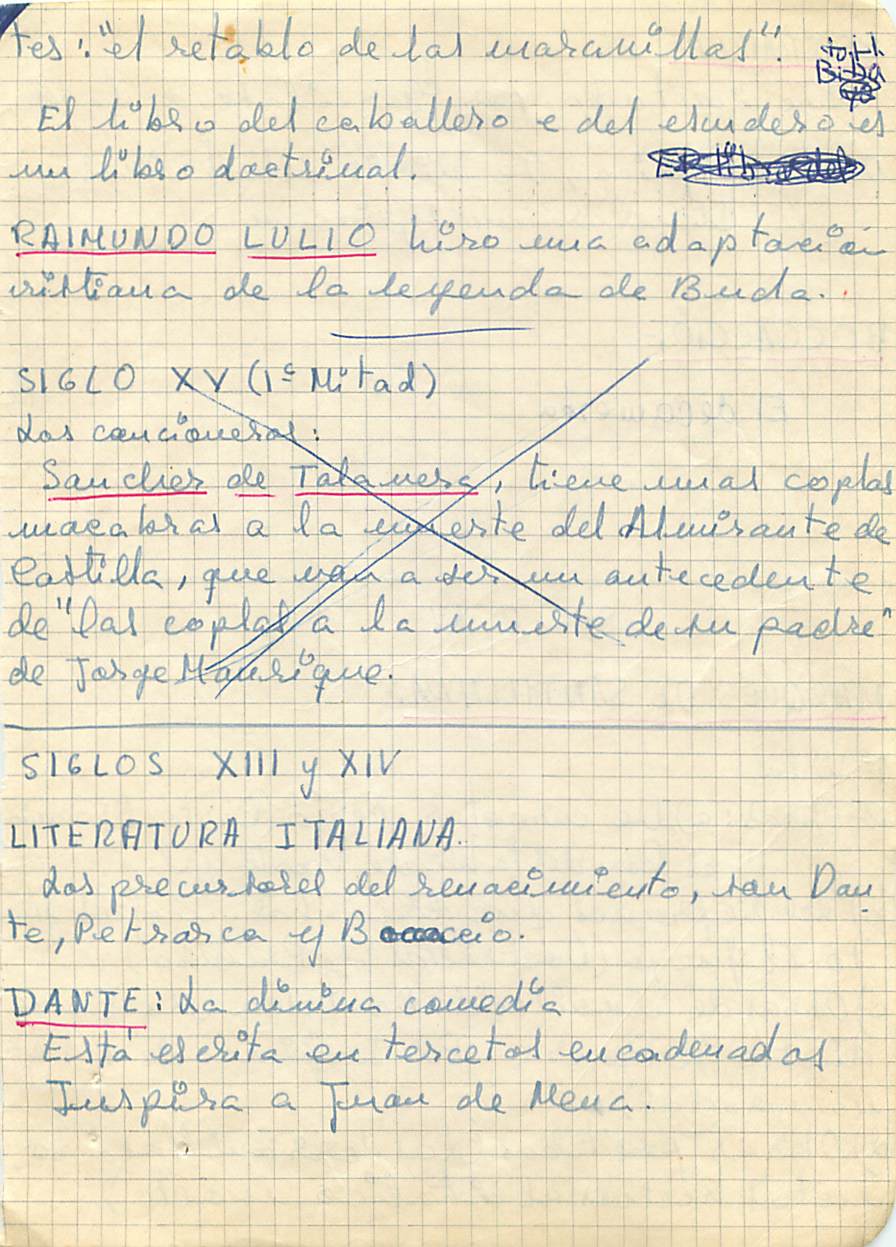 tes: "el retablo de las maravillas".
El libro del caballero e del escudero es
un libro doctrinal.
RAIMUNDO LULIO hizo una adaptación
cristiana de la leyenda de Buda.
SIGLO XV (1ª Mitad)
Los cancioneros:
Sanchez de Talavera, tiene unas coplas
macabras a la muerte del Almirante de
Castilla, que van a ser un antecedente
de "las coplas a la muerte de su padre"
de Jorge Manrique.
SIGLOS XIII y XIV
LITERATURA ITALIANA.
Los precursores del renacimiento, son Dan
te, Petrarca y Boccaccio.
DANTE: La divina comedia
Está escrita en tercetos encadenados
Inspira a Juan de Mena.